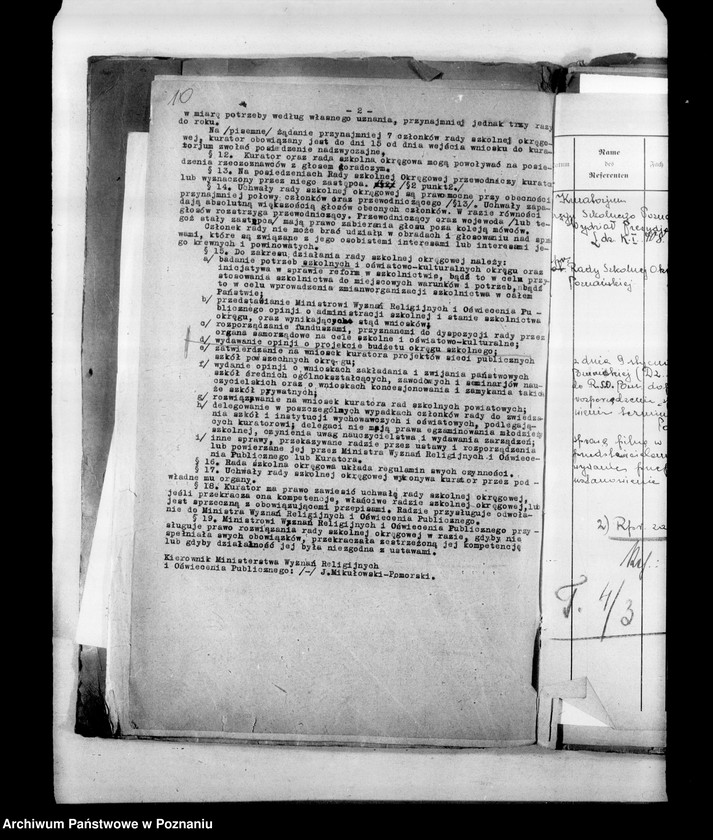 10
- 2 -
w miarę potrzeby według własnego uznania, przynajmniej jednak trzy razy
do roku.
Na /pisemne/ żądanie przynajmniej 7 członków rady szkolnej okręgo-
wej, kurator obowiązany jest do dni 15 od dnia wejścia wniosku do kura-
torjum zwołać posiedzenie nadzwyczajne.
§ 12. Kurator oraz rada szkolna okręgowa mogą powoływać na posie-
dzenia rzeczoznawców z głosem doradczym.
§ 13. Na posiedzeniach Rady szkolnej Okręgowej przewodniczy kurator
lub wyznaczony przez niego zastępca. /§2 punkt2./
§ 14. Uchwały rady szkolnej okręgowej są prawomocne przy obecności
przynajmniej połowy członków oraz przewodniczącego /§13/. Uchwały zapa-
dają absolutną większością głosów obecnych członków. W razie równości
głosów rozstrzyga przewodniczący. Przewodniczący oraz wojewoda /lub te-
goż stały zastępca/ mają prawo zabierania głosu poza koleją mówców.
Członek rady nie może brać udziału w obradach i głosowaniu nad spra
wami, które są związane z jego osobistemi interesami lub interesami je-
go krewnych i powinowatych.
§ 15. Do zakresu działania rady szkolnej okręgowej należy:
a/ badanie potrzeb szkolnych i oświatowo-kulturalnych okręgu oraz
inicjatywa w sprawie reform w szkolnictwie, bądź to w celu przy-
stosowania szkolnictwa do miejscowych warunków i potrzeb, bądź
to w celu wprowadzenia zmianworganizacji szkolnictwa w całem
Państwie;
b/ przedstawianie Ministrowi Wyznań Religijnych i Oświecenia Pu-
blicznego opinji o administracji szkolnej i stanie szkolnictwa
okręgu, oraz wynikających stąd wniosków;
c/ rozporządzanie funduszami, przyznanemi do dyspozycji rady przez
organa samorządowe na cele szkolne i oświatowo-kulturalne;
d/ wydawanie opinji o projekcie budżetu okręgu szkolnego;
e/ zatwierdzanie na wniosek kuratora projektów sieci publicznych
szkół powszechnych okręgu;
f/ wydanie opinji o wnioskach zakładania i zwijania państwowych
szkół średnich ogólnokształcących, zawodowych i seminarjów nau-
czycielskich oraz o wnioskach koncesjonowania i zamykania takich
że szkół prywatnych;
g/ rozwiązywanie na wniosek kuratora rad szkolnych powiatowych;
h/ delegowanie w poszczególnych wypadkach członków rady do zwiedza-
nia szkół i instytucji wychowawczych i oświatowych, podlegają-
cych kuratorowi; delegaci nie mają prawa egzaminowania młodzieży
szkolnej, czynienia uwag nauczycielstwu i wydawania zarządzeń;
i/ inne sprawy, przekazywane radzie przez ustawy i rozporządzenia
lub powierzane jej przez Ministra Wyznań Religijnych i Oświece-
nia Publicznego lub Kuratora.
§ 16. Rada szkolna okręgowa układa regulamin swych czynności.
§ 17. Uchwały rady szkolnej okręgowej wykonywa kurator przez pod -
władne mu organy.
§ 18. Kurator ma prawo zawiesić uchwałę rady szkolnej okręgowej,
jeśli przekracza ona kompetencje, właściwe radzie szkolnej okręgowej, lub
jest sprzeczną z obowiązującemi przepisami. Radzie przysługuje odwoła-
nie do Ministra Wyznań Religijnych i Oświecenia Publicznego.
§ 19. Ministrowi Wyznań Religijnych i Oświecenia Publicznego przy-
sługuje prawo rozwiązania rady szkolnej okręgowej w razie, gdyby nie
spełniała swych obowiązków, przekraczała zastrzeżoną jej kompetencję
lub gdyby działalność jej była niezgodna z ustawami.
Kierownik Ministerstwa Wyznań Religijnych
i Oświecenia Publicznego: /-/ J.Mikułowski-Pomorski.
Name
des
Referenten
Kuratorjum
Szkolnego
Rady Szkolnej
Poznańskiej
z dnia 9
sprawę pilną w
2) Rpr. za
T. 4/3
Archiwum Państwowe w Poznaniu